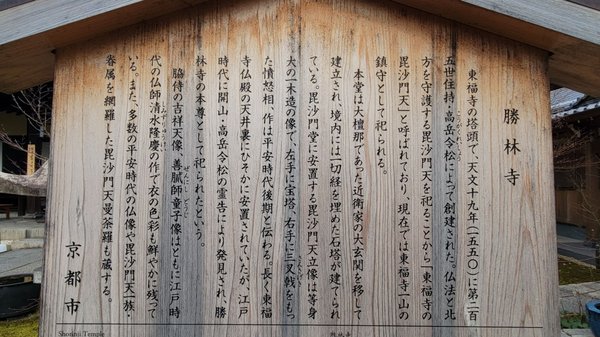 勝林寺
東福寺の塔頭で、天文十九年(一五五〇)に第二百
五世住持・高岳令松によって創建された。仏法と北
方を守護する毘沙門天を祀ることから「東福寺の
毘沙門天」と呼ばれており、現在では東福寺一山の
鎮守として祀られる。
本堂は大檀那であった近衛家の大玄関を移して
建立され、境内には一切経を埋めた石塔が建てられ
ている。毘沙門堂に安置する毘沙門天立像は等身
大の一木造の像で、左手に宝塔、右手に三叉戟をもっ
た憤怒相、作は平安時代後期と伝わる。長く東福
寺仏殿の天井裏にひそかに安置されていたが、江戸
時代に開山・高岳令松の霊告により発見され、勝
林寺の本尊として祀られたという。
脇侍の吉祥天像、善膩師童子像はともに江戸時
代の仏師清水隆慶の作で衣の色彩も鮮やかに残って
いる。また、多数の平安時代の仏像や毘沙門天一族・
眷属を網羅した毘沙門天曼荼羅も蔵する。
京都市
Shorinji Temple